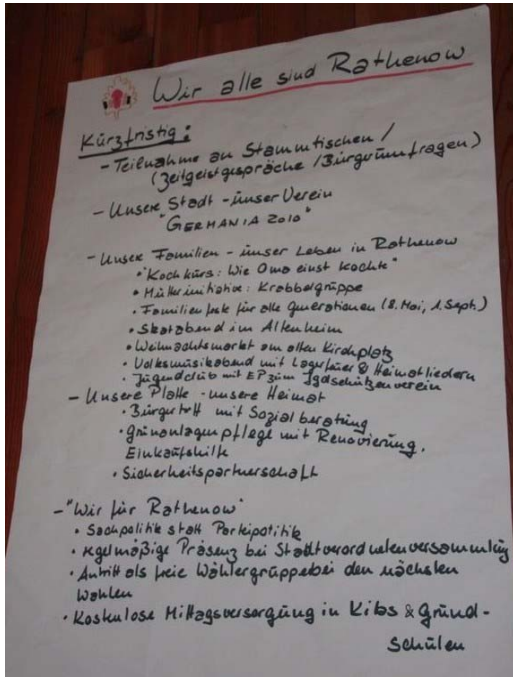 Wir alle sind Rathenow
Kurzfristig:
- Teilnahme an Stammtischen /
(Zeitgeistgespräche / Bürgerumfragen)
- Unsere Stadt - unser Verein
"GERMANIA 2010"
- Unsere Familien - unser Leben in Rathenow
• "Kochkurs: Wie Oma einst kochte"
• Mütterinitiative: Krabbelgruppe
• Familienfeste für alle Generationen (8. Mai, 1. Sept.)
• Skatabend im Altenheim
• Weihnachtsmarkt am alten Kirchplatz
• Volksmusikabend mit Lagerfeuer & Heimatliedern
• Jugendclub mit EP zum
- Unsere Platte - unsere Heimat
• Bürgertreff mit Sozialberatung
• Grünanlagenpflege mit Renovierung,
Einkaufshilfe
• Sicherheitspartnerschaft
- "Wir für Rathenow"
• Sachpolitik statt Parteipolitik
• regelmäßige Präsenz bei Stadtverordnetenversammlung
• Antritt als freie Wählergruppe bei den nächsten
Wahlen
• Kostenlose Mittagsversorgung in Kibs & Grund-
schulen